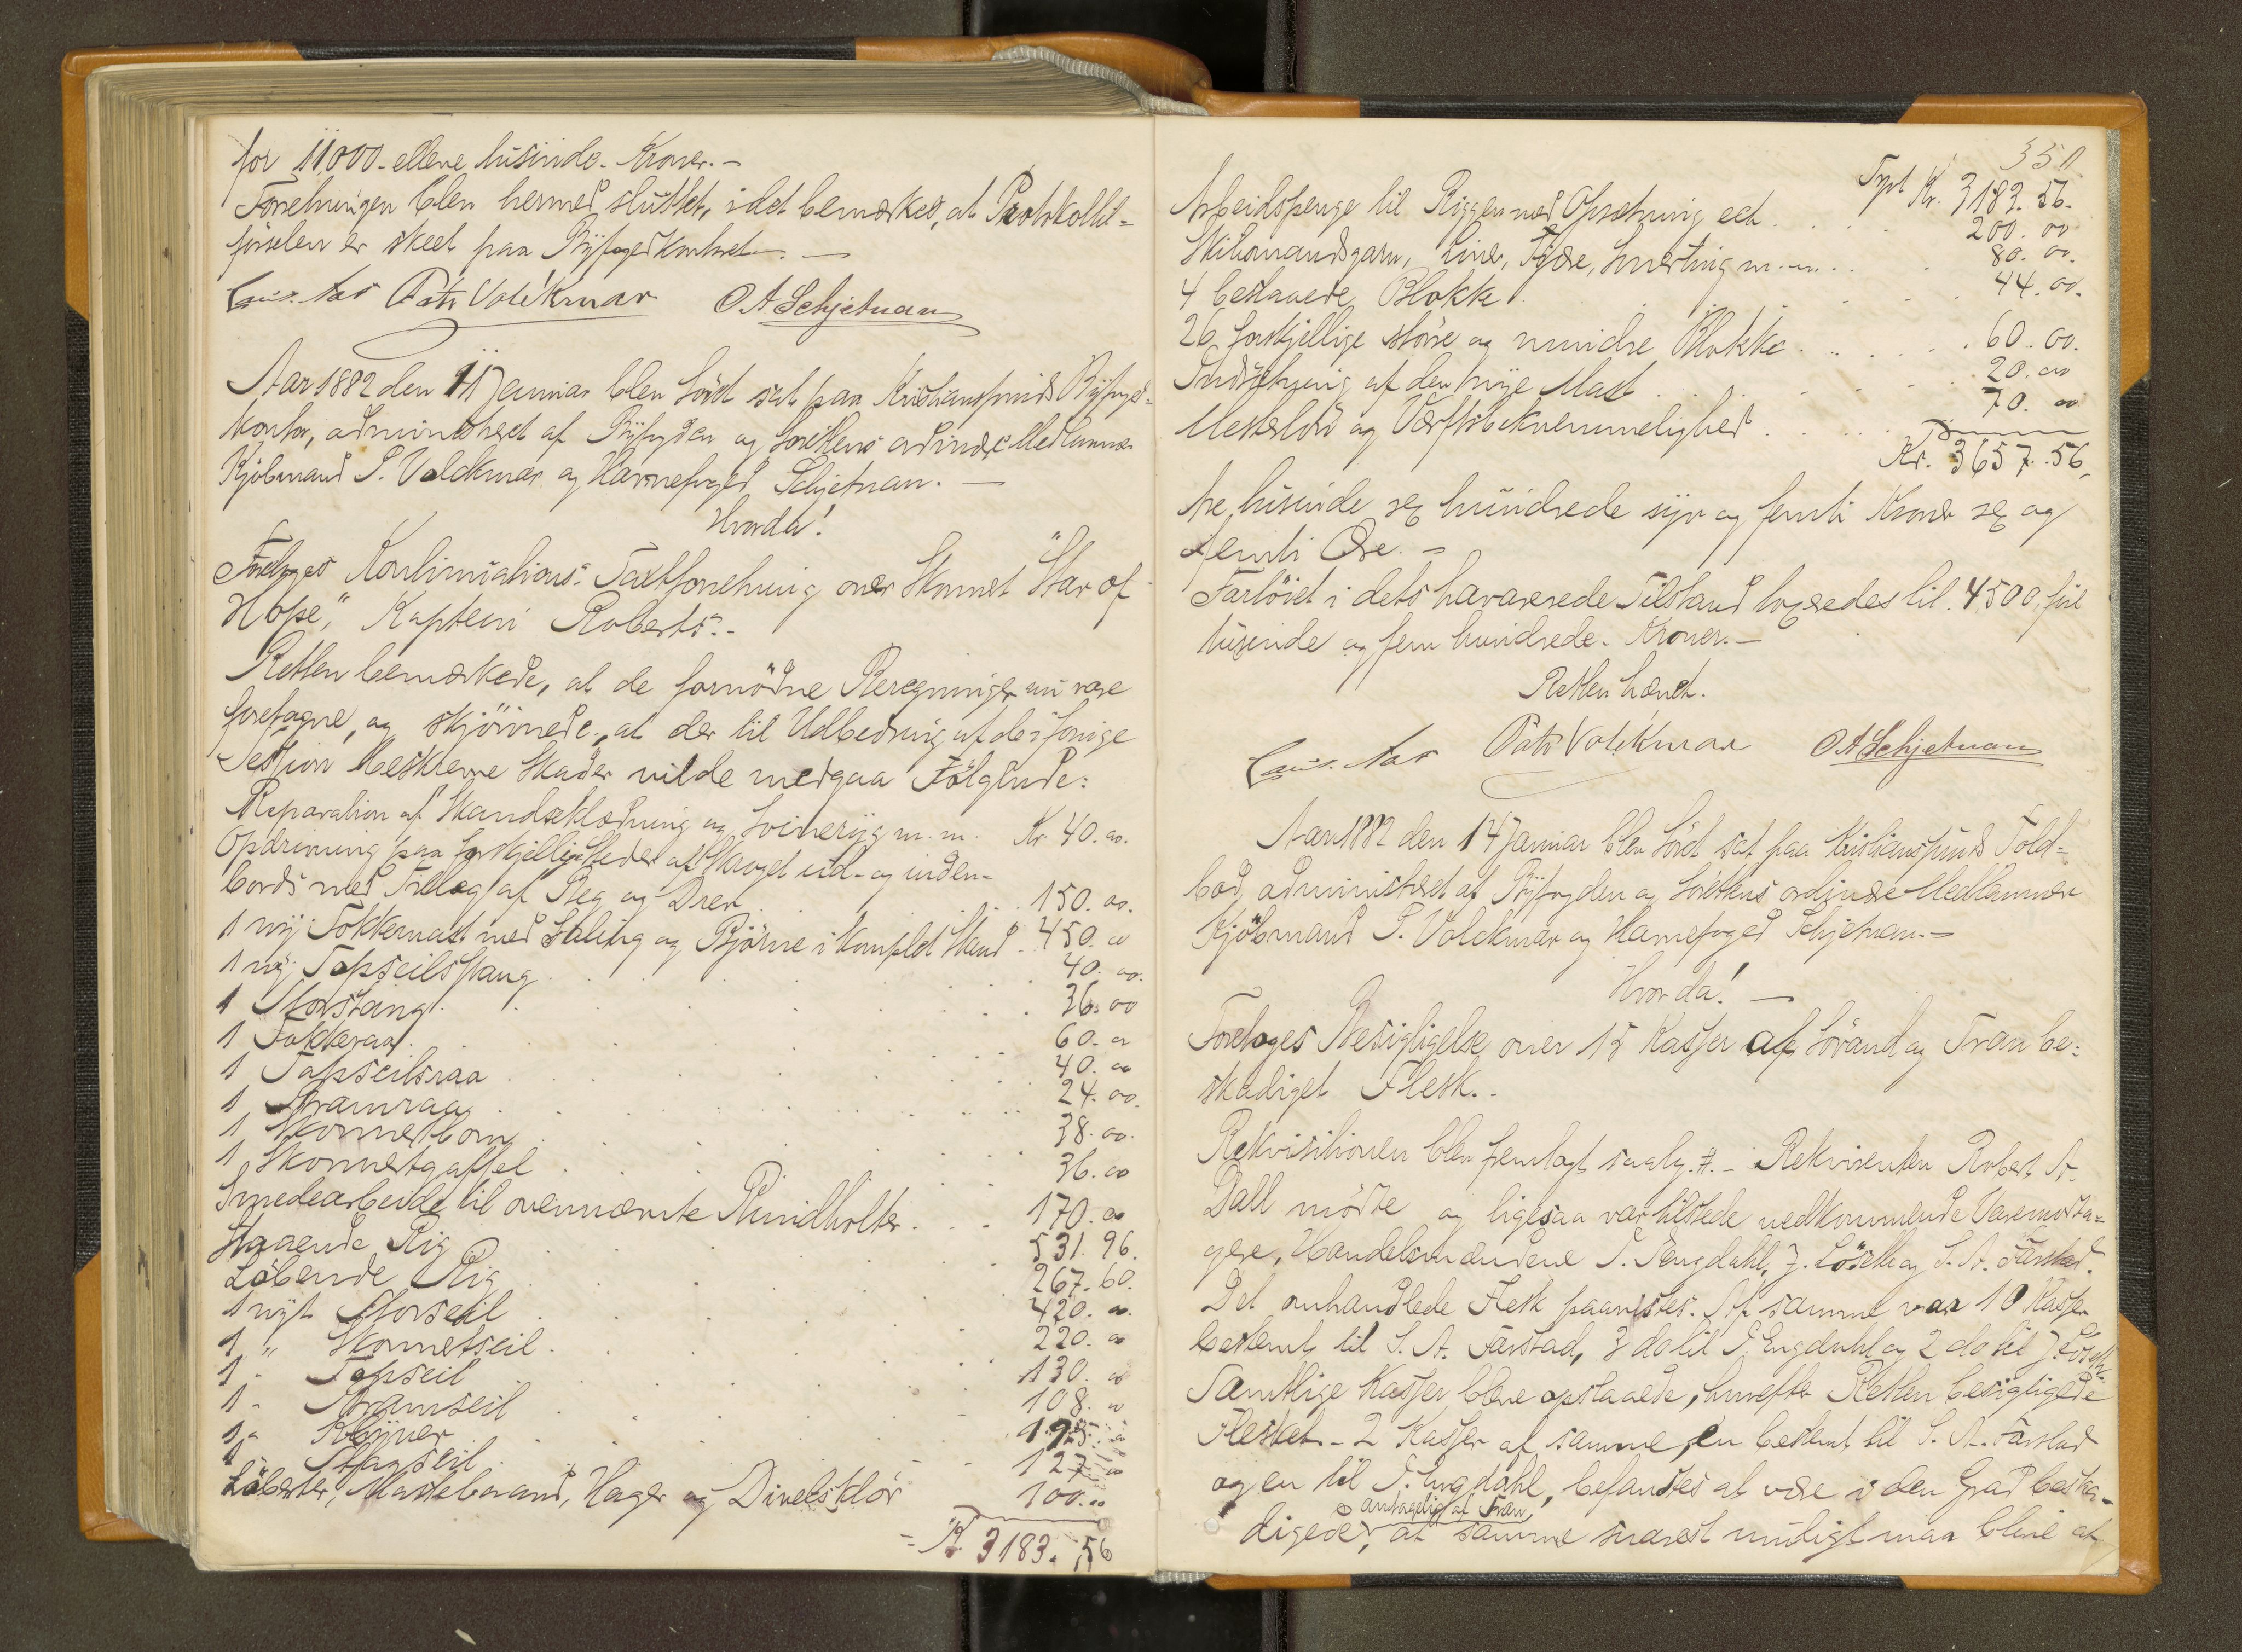 for 11000 - elleve tusinde - Kroner. -
Forretningen blev hermed sluttet, idet bemærkes, at Protokoltil-
förselen er skeet paa Byfogedkontoret. -
Pet. Volckmar O. A. Schjetnan
Aar 1882 den 11 Januar blev Söret sat paa Kristianssunds Byfoged-
kontor, administreret af Byfogden og Sörettens ordinære Medlemmer
Kjöbmand P. Volckmar og Havnefoged Schjetnan. -
Hvorda!
Foretoges Kontinuations-Taxtforretning over Skonnert "Star of
Hope", Kaptein Roberts. -
Retten bemærkede, at de fornödne Beregninger nu vare
foretagne, og skjönnede, at der til Udbedring af de i forrige
Session beskrevne Skader vilde medgaa Fölgende:
Reparation af Skandseklædning og Svineryg m. m. Kr. 40. 00.
Opdrivning paa forskjellige Steder af Skroget ud- og inden-
bords med Tillæg af Beg og Drev . . . 150. 00.
1 ny Fokkemast med Saling og Bjørne i komplet Stand . 450. 00
1 ny Topseilsstang . . . 40. 00.
1 Storstang . . . 36. 00
1 Fokkeraa . . . 60. 00
1 Topseilsraa . . . 40. 00
1 Bramraa . . . 24. 00.
1 Skonnertbom . . . 38. 00.
1 Skonnertgaffel . . . 36. 00
Smedearbeide til ovennævnte Rundholter . . . 170. 00
Staaende Rig . . . 531. 96.
Löbende Rig . . . 267. 60.
1 nyt Storseil . . . 420. 00.
1 " Skonnetseil . . . 220. 00
1 - Topseil . . . 130. 00
1 - Bramseil . . . 108. 00
1 - Klyver . . .
1 Stagseil . . . 127. 00
Löberter, Mastebaand, Hager og Divelsklör 100. 00
= Kr. 3183. 56
350
Tpt Kr. 3183. 56.
Arbeidspenge til Riggen med Opsætning ect . . . 200. 00
Skibmandsgarn, Liner, Tjære, Smerting m. m. . . 80. 00.
4 beslaaede Blokke . . . 44. 00.
26 forskjellige störe og mindre Blokke . . . 60. 00.
Indsætning af den nye Mast . . . 20. 00
Mesterlön og Værftsbekvemmelighed . . . 70. 00
Kr. 3657. 56.
tre tusinde sex hundrede syv og femti Kroner sex og
femti Øre. -
Fartöiet i dets havarerede Tilstand taxeredes til 4500, fire
tusinde og fem hundrede - Kroner. -
Retten hævet.
Pet. Volckmar O. A. Schjetnan
Aar 1882 den 14 Januar blev Söret sat paa Kristianssunds Told-
bod, administreret af Byfogden og Sörettens ordinære Medlemmer
Kjöbmand P. Volckmar og Havnefoged Schjetnan. -
Hvor da! -
Foretoges Besigtigelse over 15 Kasser af Sövand og Tran be-
skadiget Flesk. -
Rekvisitionen blev fremlagt saalyd. #. - Rekvirenten Robert A.
Dall mödte og ligesaa var tilstede vedkommende Varemodta-
gere, Handelsmændene P. Engdahl, J. Lösethe og S. A. Farstad.
Det omhandlede Flesk paavistes. Af samme var 10 Kasser
bestemt til S. A. Farstad, 3 do til P. Engdahl og 2 do til J. Lösethe.
Samtlige Kasser bleve opslaaede, hvorefter Retten besigtigede
Flesket. - 2 Kasser af samme, en bestemt til S. A. Farstad
og en til P. Engdahl, befandtes at være i den Grad beska-
antagelig af Tran,
digede, at samme snarest muligt maa blive af